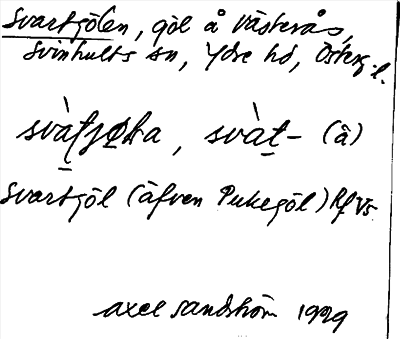 Svartgölen, göl å Västerås,
Svinhults sn, Ydre hd, Österg. l.
svàt-
Svartgöl (äfven Pukegöl) Rf Vs.
Axel Sandström 1929